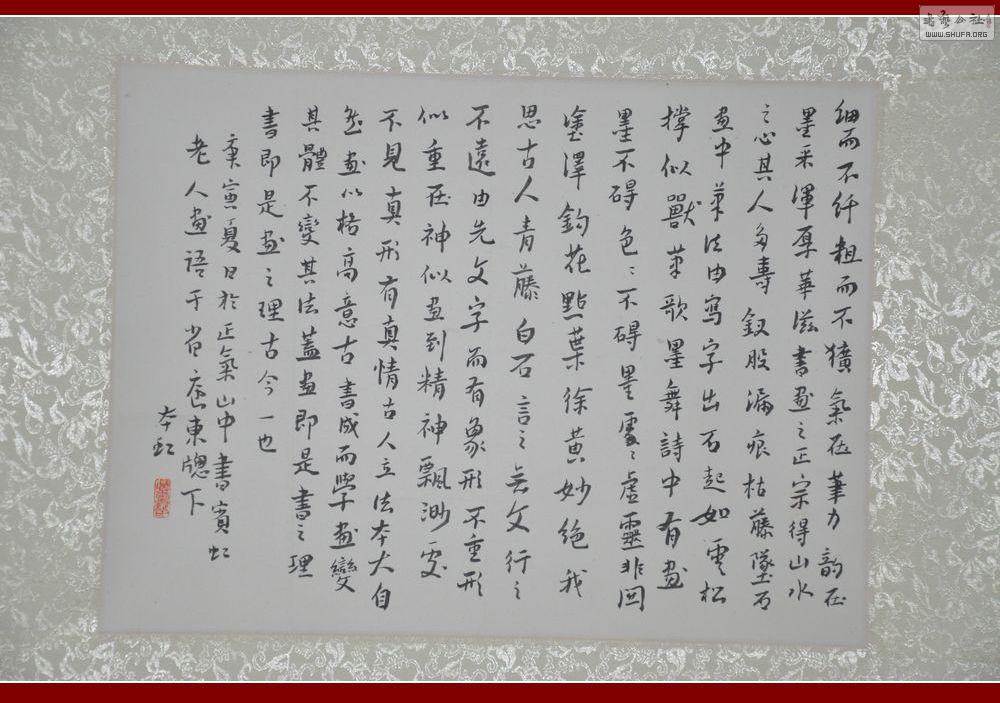 細而不纤粗而不獷氣在筆力韵在
墨采渾厚華滋書畫之正宗得山水
之心其人多壽釵股漏痕枯藤墜石
畫中筆法由寫字出石起如雲松
撑似獸筆歌墨舞詩中有畫
墨不碍色色不碍墨處處虚靈非回
塗澤鈎花點葉徐黄妙絶我
思古人青藤白石言之無文行之
不遠由先文字而有象形不重形
似重在神似畫到精神飄渺處
不見真形有真情古人立法本大自
然畫以格高意古書成而學畫變
其體不變其法蓋畫即是書之理
書即是畫之理古今一也
庚寅夏日於正氣山中書賓虹
老人畫語于省庐東牕下
本
WWW.SHUFA.ORG